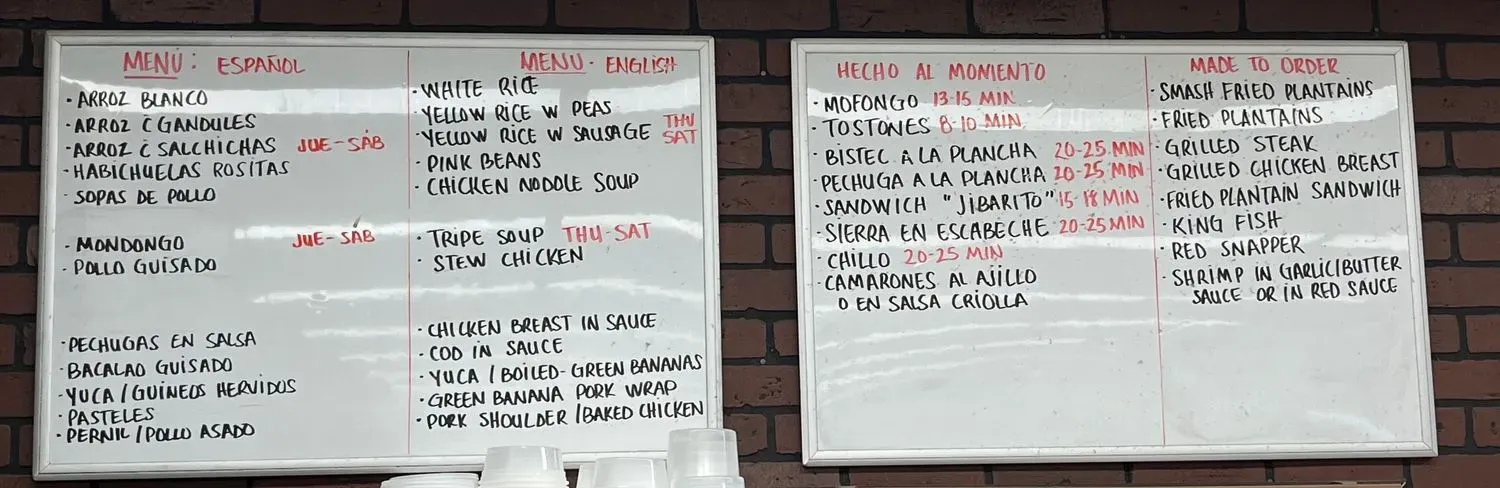 MENÚ: ESPAÑOL
· ARROZ BLANCO
· ARROZ C GANDULES
· ARROZ C SALCHICHAS JUE-SÁB
· HABICHUELAS ROSITAS
· SOPAS DE POLLO
· MONDONGO JUE-SÁB
· POLLO GUISADO
· PECHUGAS EN SALSA
· BACALAO GUISADO
· YUCA / GUINEOS HERVIDOS
· PASTELES
· PERNIL / POLLO ASADO
MENU · ENGLISH
· WHITE RICE
· YELLOW RICE W PEAS
· YELLOW RICE W SAUSAGE THU SAT
· PINK BEANS
· CHICKEN NODDLE SOUP
· TRIPE SOUP THU-SAT
· STEW CHICKEN
· CHICKEN BREAST IN SAUCE
· COD IN SAUCE
· YUCA / BOILED-GREEN BANANAS
· GREEN BANANA PORK WRAP
· PORK SHOULDER / BAKED CHICKEN
HECHO AL MOMENTO
· MOFONGO 13-15 MIN
· TOSTONES 8-10 MIN
· BISTEC A LA PLANCHA 20-25 MIN
· PECHUGA A LA PLANCHA 20-25 MIN
· SANDWICH "JIBARITO" 15-18 MIN
· SIERRA EN ESCABECHE 20-25 MIN
· CHILLO 20-25 MIN
· CAMARONES AL AJILLO
O EN SALSA CRIOLLA
MADE TO ORDER
· SMASH FRIED PLANTAINS
· FRIED PLANTAINS
· GRILLED STEAK
· GRILLED CHICKEN BREAST
· FRIED PLANTAIN SANDWICH
· KING FISH
· RED SNAPPER
· SHRIMP IN GARLIC/BUTTER
SAUCE OR IN RED SAUCE